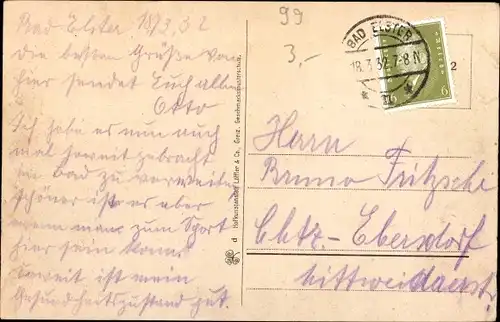 Bad Elster 18/3.32
Die besten Grüße von
hier sendet Euch allen
Otto
Ich habe es nun auch
mal soweit gebracht
im Bad zu verweilen
schöner ist es aber
wenn man zum Sport
hier sein kann.
Soweit ist mein
Gesundheitszustand gut.
99
3,-
BAD ELSTER
18.3.32.7-8 N
6 6
2
Herrn
Bruno Fritzsche
Chtz.-Ebersdorf
Mittweidaerstr.